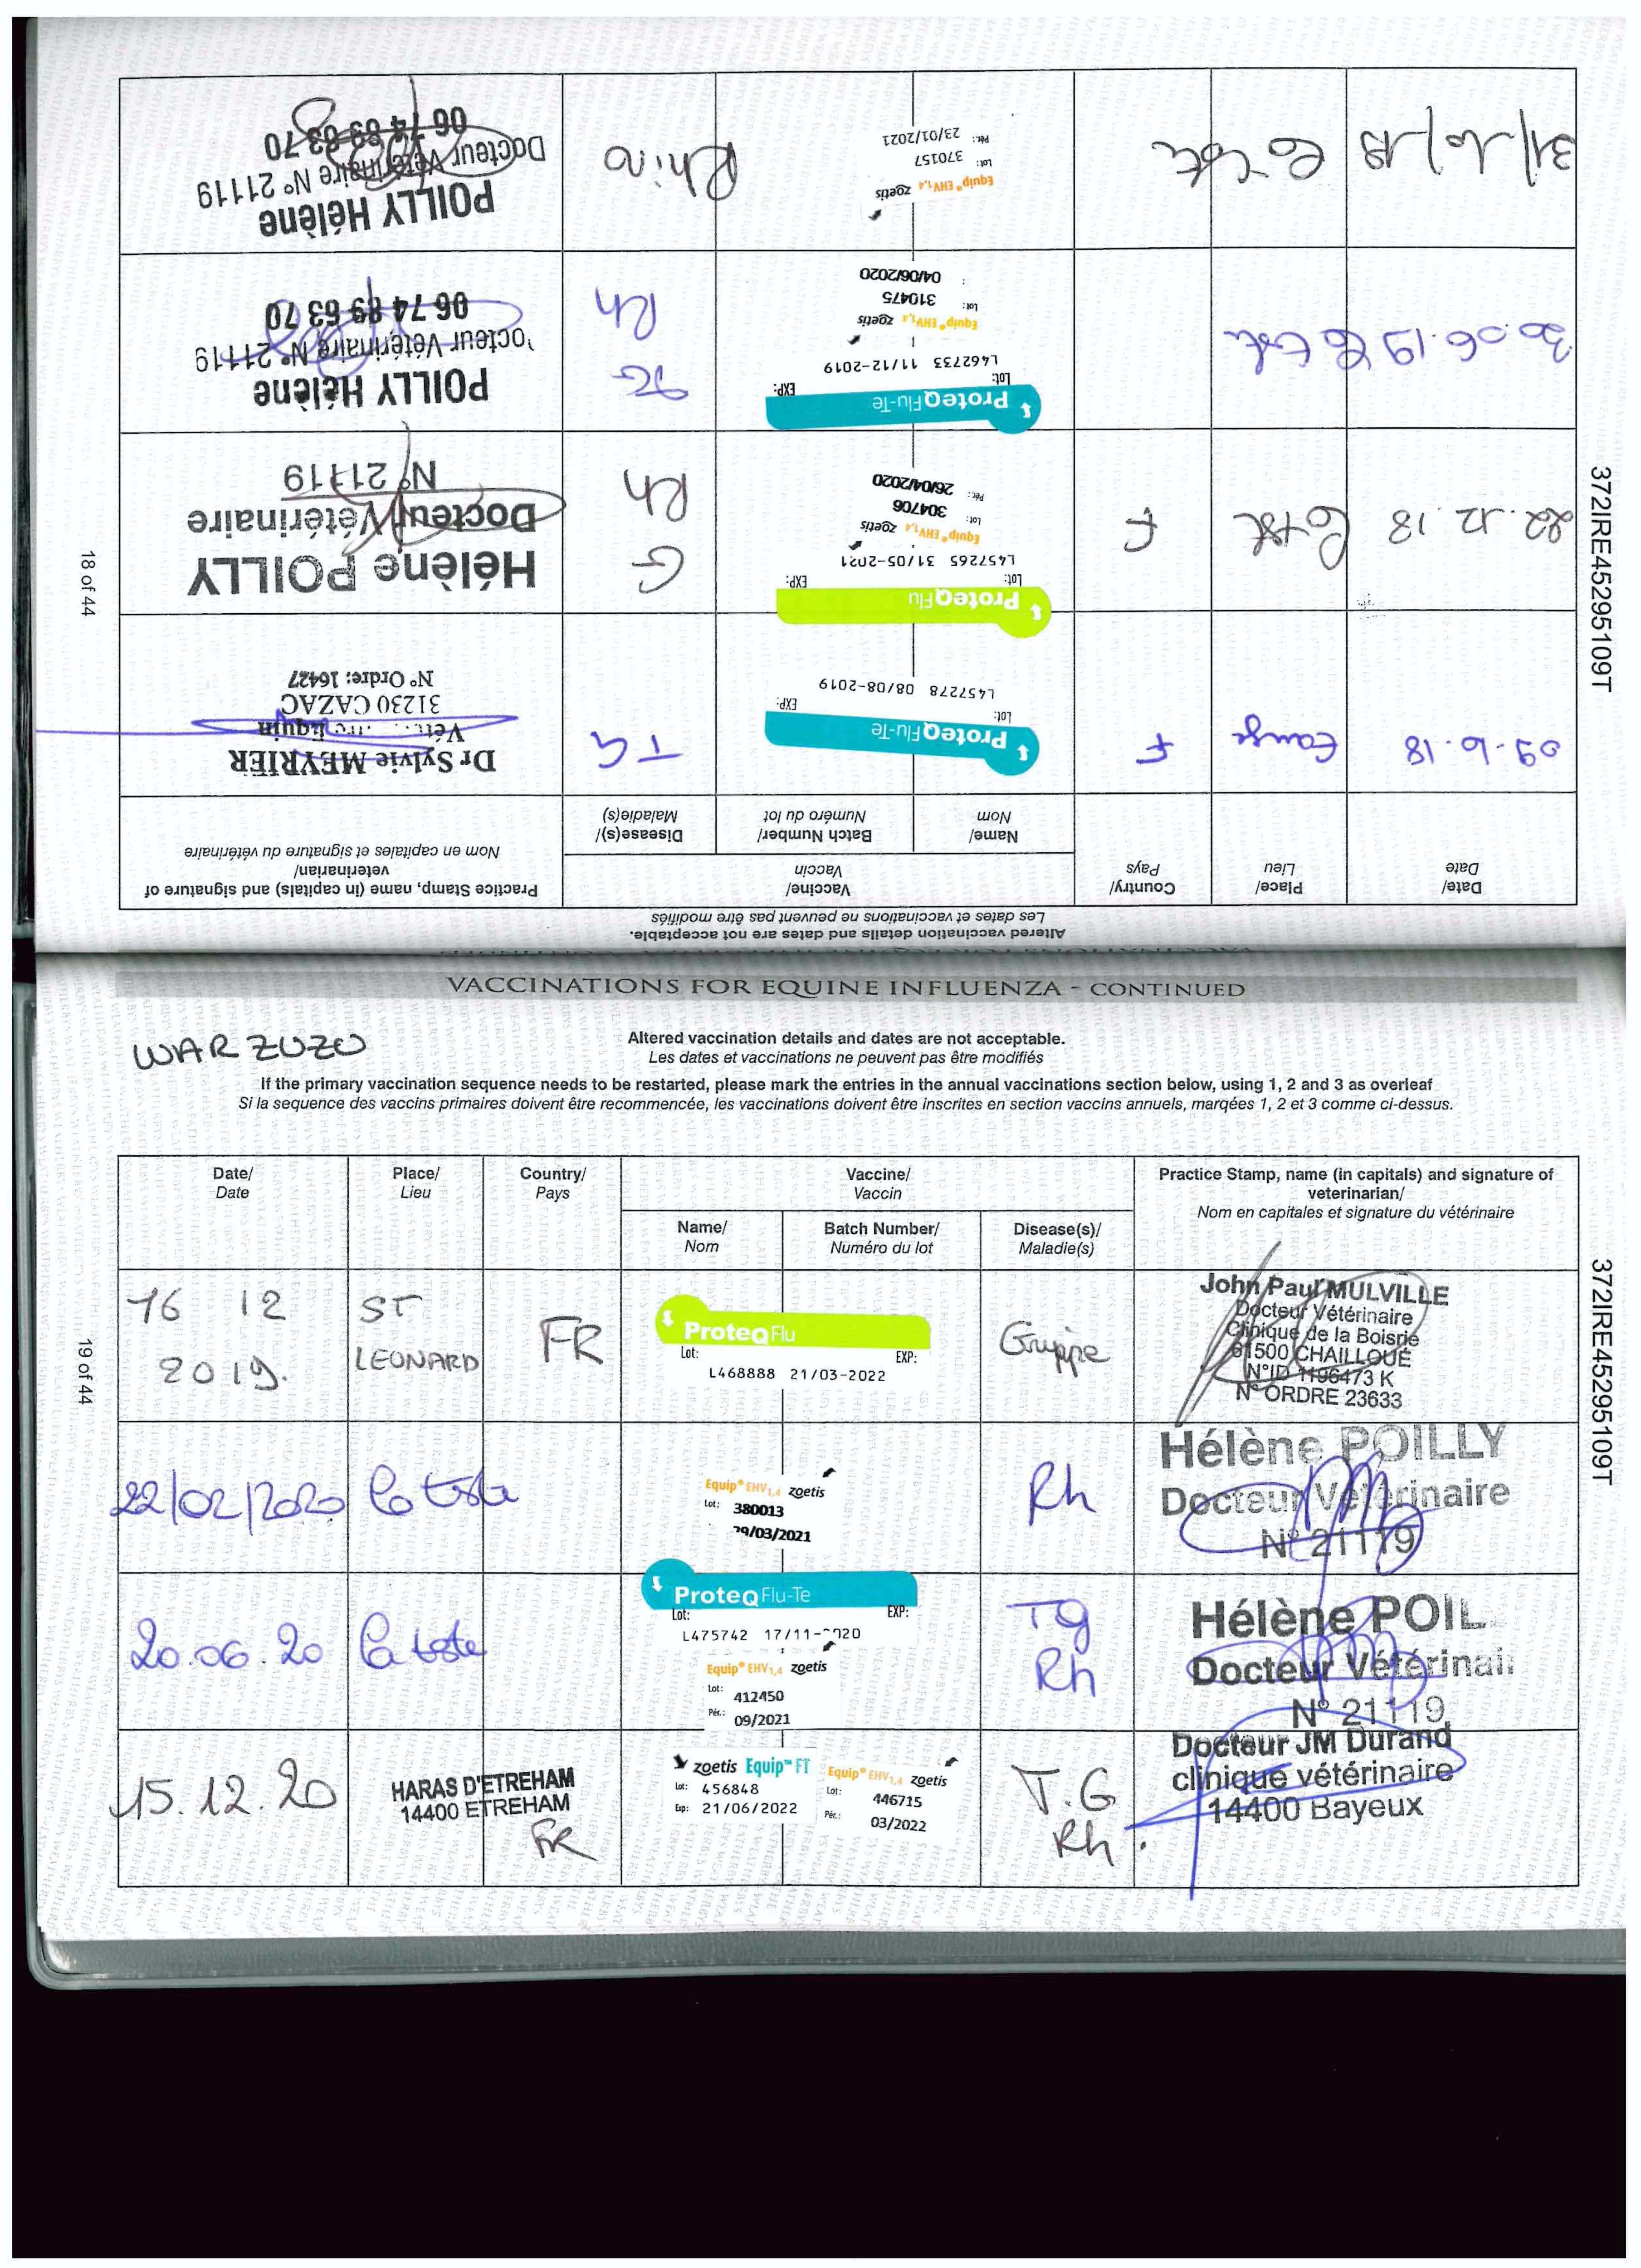 Altered vaccination details and dates are not acceptable.
Les dates et vaccinations ne peuvent pas être modifiés
Date/
Date
Place/
Lieu
Country/
Pays
Vaccine/
Vaccin
Name/
Nom
Batch Number/
Numéro du lot
Disease(s)/
Maladie(s)
Practice Stamp, name (in capitals) and signature of
veterinarian/
Nom en capitales et signature du vétérinaire
F
ProteqFlu-Te
Lot: EXP:
L457278 08/08-2019
TG
Dr Sylvie MEYRIER
31230 CAZAC
N° Ordre: 16427
22.12.18
F
ProteqFlu
Lot: EXP:
L457265 31/05-2021
Equip® EHV1,4 zoetis
Lot: 304706
Pér.: 26/04/2020
G
Rh
Hélène POILLY
Docteur Vétérinaire
N° 21119
30.06.19
ProteqFlu-Te
Lot: EXP:
L462733 11/12-2019
Equip® EHV1,4 zoetis
Lot: 310475
: 04/06/2020
TG
Rh
POILLY Hélène
octeur Vétérinaire N° 21119
06 74 89 63 70
Equip® EHV1,4 zoetis
Lot: 370157
Pér.: 23/01/2021
Rhino
POILLY Hélène
Docteur Vétérinaire N° 21119
06 74 89 63 70
18 of 44
372IRE45295109T
VACCINATIONS FOR EQUINE INFLUENZA - CONTINUED
WAR ZUZU
Altered vaccination details and dates are not acceptable.
Les dates et vaccinations ne peuvent pas être modifiés
If the primary vaccination sequence needs to be restarted, please mark the entries in the annual vaccinations section below, using 1, 2 and 3 as overleaf
Si la sequence des vaccins primaires doivent être recommencée, les vaccinations doivent être inscrites en section vaccins annuels, marqées 1, 2 et 3 comme ci-dessus.
Date/
Date
Place/
Lieu
Country/
Pays
Vaccine/
Vaccin
Name/
Nom
Batch Number/
Numéro du lot
Disease(s)/
Maladie(s)
Practice Stamp, name (in capitals) and signature of
veterinarian/
Nom en capitales et signature du vétérinaire
16 12
2019.
ST
LEONARD
FR
ProteqFlu
Lot: EXP:
L468888 21/03-2022
Grippe
John Paul MULVILLE
Docteur Vétérinaire
Clinique de la Boisrie
61500 CHAILLOUÉ
N°ID 1196473 K
N° ORDRE 23633
22/02/2020
Equip® EHV1,4 zoetis
Lot: 380013
29/03/2021
Rh
Hélène POILLY
Docteur Vétérinaire
N° 21119
20.06.20
ProteqFlu-Te
Lot: EXP:
L475742 17/11-2020
Equip® EHV1,4 zoetis
Lot: 412450
Pér.: 09/2021
Tg
Rh
Hélène POIL
Docteur Vétérinai
N° 21119
15.12.20
HARAS D'ETREHAM
14400 ETREHAM
FR
zoetis Equip™ FT
Lot: 456848
Exp: 21/06/2022
Equip® EHV1,4 zoetis
Lot: 446715
Pér.: 03/2022
T.G
Rh.
Docteur JM Durand
clinique vétérinaire
14400 Bayeux
19 of 44
372IRE45295109T